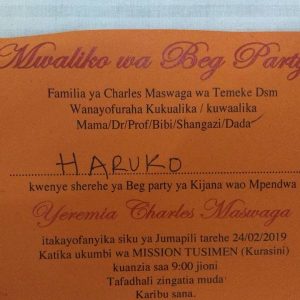 Mwaliko wa Beg Party
Familia ya Charles Maswaga wa Temeke Dsm
Wanayofuraha Kukualika / kuwaalika
Mama/Dr/Prof/Bibi/Shangazi/Dada
HARUKO
kwenye sherehe ya Beg party ya Kijana wao Mpendwa
Yeremia Charles Maswaga
itakayofanyika siku ya Jumapili tarehe 24/02/2019
Katika ukumbi wa MISSION TUSIMEN (Kurasini)
kuanzia saa 9:00 jioni
Tafadhali zingatia muda
Karibu sana.